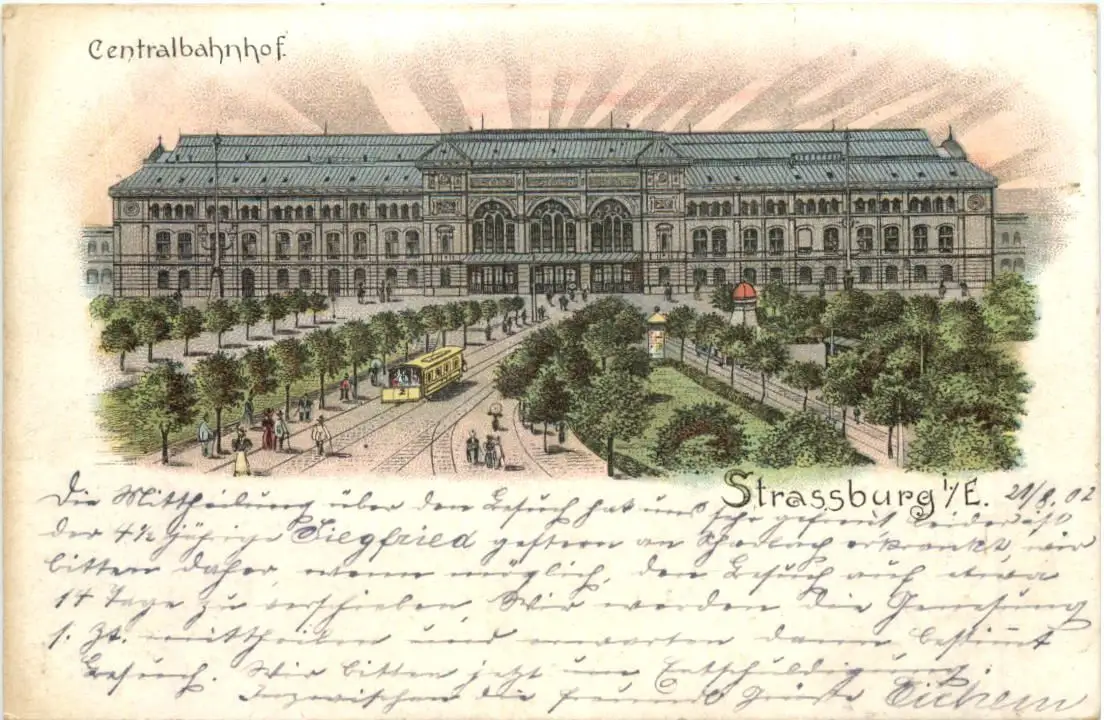 Centralbahnhof.
Strassburg i/E. 21/8.02
Die Mittheilung über den Besuch hat uns sehr gefreut, leider ist
der 4½ jährige Siegfried gestern an Scharlach erkrankt, wir
bitten daher, wenn möglich, den Besuch auf etwa
14 Tage zu verschieben. Wir werden die Genesung
s. Zt. mittheilen und erwarten dann bestimmt
Besuch. Wir bitten jetzt um Entschuldigung.
Inzwischen die freundl Grüße